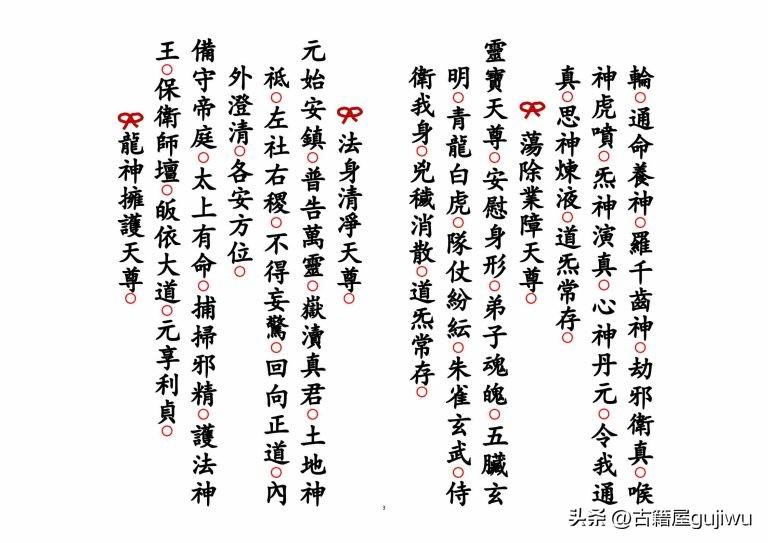 輪○通命養神○羅千齒神○劫邪衛真○喉
神虎噴○炁神演真○心神丹元○令我通
真○思神煉液○道炁常存○
蕩除業障天尊○
靈寶天尊○安慰身形○弟子魂魄○五臟玄
明○青龍白虎○隊仗紛紜○朱雀玄武○侍
衛我身○兇穢消散○道炁常存○
法身清凈天尊○
元始安鎮○普告萬靈○嶽瀆真君○土地神
祗○左社右稷○不得妄驚○回向正道○內
外澄清○各安方位○
備守帝庭○太上有命○捕掃邪精○護法神
王○保衛師壇○皈依大道○元享利貞○
龍神擁護天尊○
3
头条 @古籍屋gujiwu